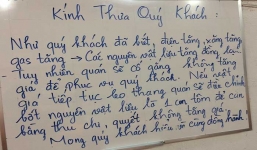 Kính Thưa Quý Khách:
Như quý khách đã biết, điện tăng, xăng tăng,
gas tăng → Các nguyên vật liệu tăng đáng
- Tuy nhiên quán sẽ cố gắng không tăng
giá để phục vụ quý khách. Nếu
giá tiếp tục leo thang quán sẽ điều chỉnh
bớt nguyên vật liệu là 1 con tôm để cân
bằng thu chi, quyết không tăng giá,
Mong quý khách hiểu và cùng đồng hành